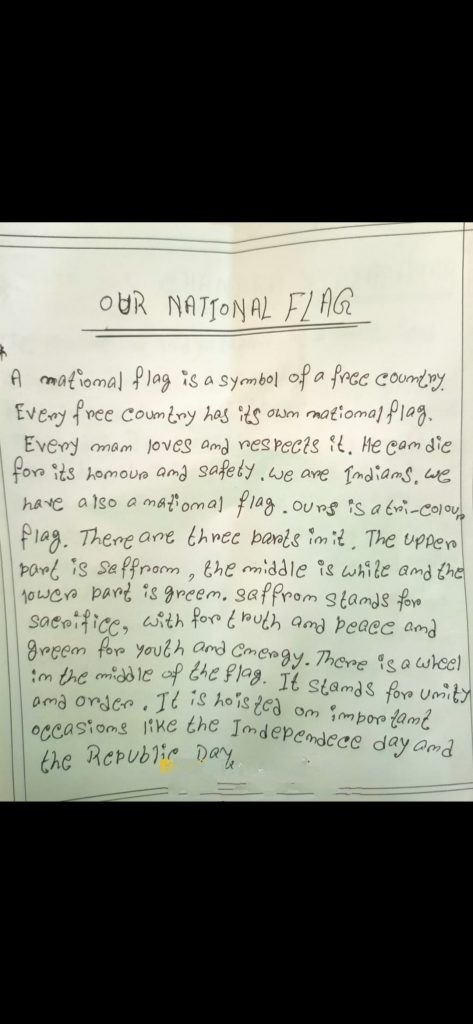 OUR NATIONAL FLAG
A national flag is a symbol of a free country.
Every free country has its own national flag.
Every man loves and respects it. He can die
for its honour and safety. we are Indians. we
have also a national flag. ours is a tri-colour
flag. There are three parts in it. The upper
part is saffron, the middle is white and the
lower part is green. saffron stands for
sacrifice, with for truth and peace and
green for youth and energy. There is a wheel
in the middle of the flag. It stands for unity
and order. It is hoisted on important
occasions like the Independece day and
the Republic Day.